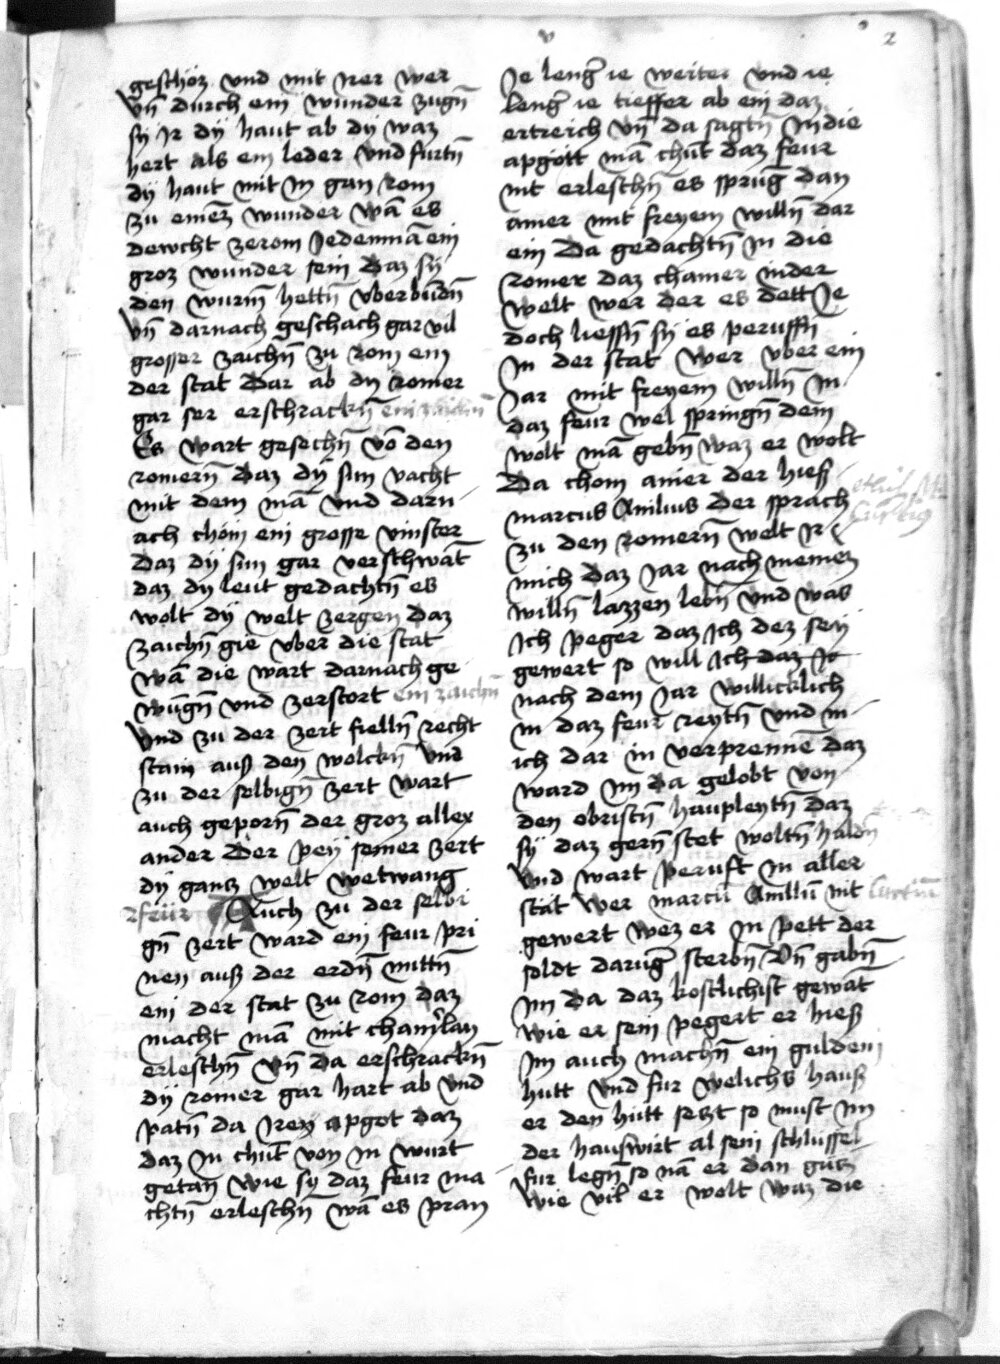 v
2
geschoz vnd mit irer wer
vn̄ durch ein wunder zugn̄
sy ir dy haut ab dy waz
hert als ein leder vnd furtn̄
dy haut mit in gan rom
zu einem wunder wā es
dewcht zerom Jedemmā ein
groz wunder sein daz sy
den wurm̄ hettn̄ vberbūdn̄
vn̄ darnach geschach gar vil
grosser zaichn̄ zu rom ein
der stat Dar ab dy romer
gar ser erschrackn̄ ein zaichn̄
Es wart gesechn̄ vō den
romern̄ daz dy sun vacht
mit dem mā vnd darn
ach chom ein grosse vinster
daz dy sun gar verschwāt
daz dy leut gedachtn̄ es
wolt dy welt zergen daz
zaichn̄ gie vber die stat
wā die wart darnach ge
wūgn̄ vnd zerstort ein zaichn̄
vnd zu der zert fielln̄ recht
stain auß den wolckn̄ vnd
zu der selbign̄ zert wart
auch geporn̄ der groz allex
ander Der pey seiner zert
dy gantz welt wetwang
feür Auch zu der selbi
gn̄ zert ward ein feur pri
nen auß der erdn̄ mittn̄
ein der stat zu rom daz
macht mā mit chainerlay
erleschn̄ vn̄ da erschrackn̄
dy romer gar hart ab vnd
patn̄ da iren apgot daz
daz in chūt von in wurt
getan wie sy daz feur ma
chtn̄ erleschn̄ wā es pran
Je lenḡ ie weiter vnd ie
lenḡ ie tieffer ab ein daz
ertreich vn̄ da sagtn̄ in die
apgott mā chūt daz feur
nit erleschn̄ es sprūg dan
ainer mit freyem willn̄ dar
ein Da gedachtn̄ in die
romer daz chainer inder
welt wer der es dett Je
doch liessn̄ sy es peruffn̄
in der stat wer vber ein
Jar mit freyem willn̄ in
daz feur wel springn̄ dem
wolt mā gebn̄ waz er wolt
Da chom ainer der hieß
marcus Amilius der sprach
zu den romern̄ welt ir
mich daz Jar nach meinem
willn̄ lazzen lebn̄ vnd was
ich peger daz ich dez sey
gewert so will ich daz ir
nach dem Jar willicklich
in daz feur reytn̄ vnd m
ich dar in verprennē daz
ward im da gelobt von
den obristn̄ haupleytn̄ daz
sy daz gern̄ stet woltn̄ haldn̄
vnd wart peruft in aller
stat wer marcū Amiliū nit Curtium
gewert wez er in pett der
soldt darūg sterbn̄ vn̄ gabn̄
im da daz kostlichist gewāt
wie er sein pegert er hieß
im auch machn̄ ein gulden
hutt vnd fur welichs hauß
er den hutt setzt so must im
der hauswirt al sein schlussel
fur legn̄ so nā er dan gutz
wie vil er wolt waz die